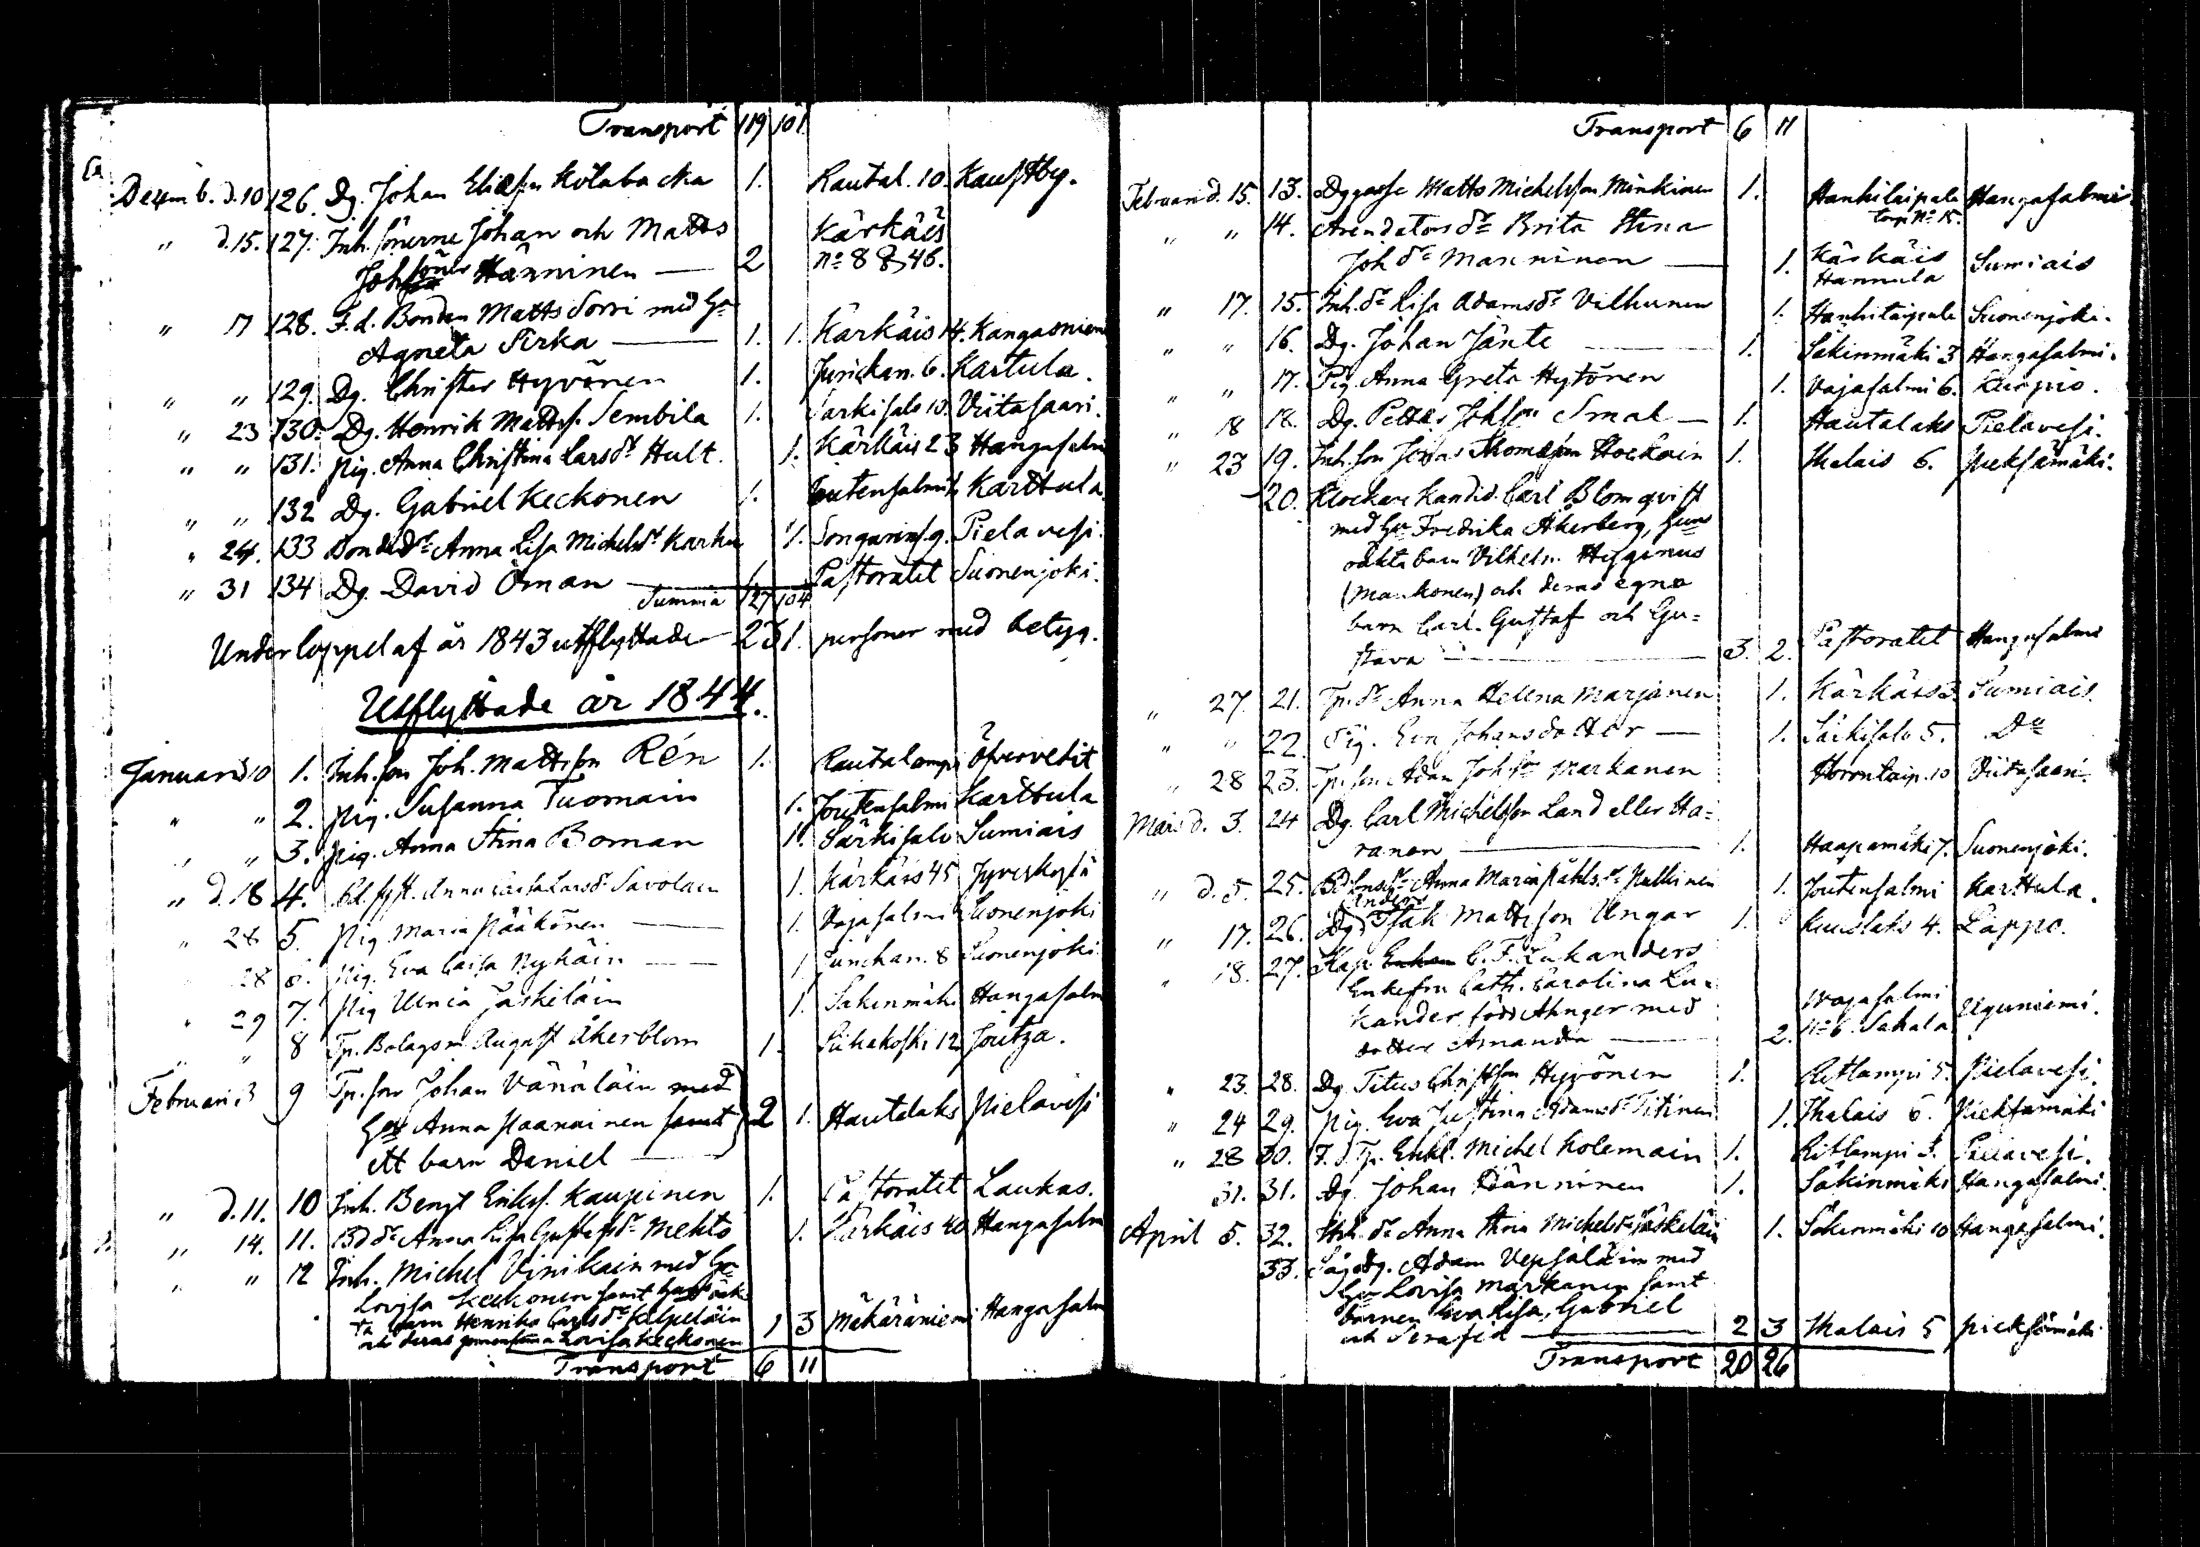 Transport 119 101
Decemb. d. 10 126. Dg. Johan Eliæsson Kölabacka 1. Rautal. 10. Kaustby.
" d. 15. 127. Inh. sönerne Johan och Matts Kärkäis
Johssöner Hänninen — 2 No 8 & 46.
" 17 128. F. d. Bonden Matts Sorri med Hu
Agneta Pirka — 1. 1. Kärkäis 14. Kangasniemi
" " 129. Dg. Christer Hyvönen 1. Junckan. 6. Karttula.
" 23 130. Dg. Henrik Mattss. Sembila 1. Särkisalo 10. Viitasaari.
" " 131. Pig. Anna Christina Larsdr Hult. 1. Kärkäis 23 Hangasalmi
" " 132 Dg. Gabriel Keckonen 1. Joutensalmi Karttula
" 24. 133 Bondedr Anna Lisa Michelsdr Karhu 1. Songarins. 9. Pielavesi.
" 31 134 Dg. David Öman — 1 Pastoratet Suonenjoki.
Summa 127 104
Under loppet af år 1843 utflyttade 231. personer med betyg.
Utflyttade år 1844.
Januari d. 10 1. Inh. son Joh. Mattsson Rén 1. Rautalampi Öfvervetil
" " 2. Pig. Susanna Tuomain 1. Joutensalmi Karttula
" " 3. Pig. Anna Stina Boman 1. Särkisalo Sumiais
" d. 18 4. Anna Caisa Larsdr Savolain 1. Kärkäis 45 Jyveskylä
" 28 5. Pig. Maria Pääkönen — 1. Vajasalmi Suonenjoki
28 6. Pig. Eva Caisa Nykäin — 1 Junckan. 8 Suonenjoki
" 29 7. Pig Ulrica Jäskeläin 1. Säkinmäki Hangasalmi
" " 8 Tp. Bolagsm. August Åkerblom 1. Liihakoski 12 Joutza.
Februari 3 9 Tp. son Johan Vänäläin med
Hu Anna Paananinen samt 2 1. Hautolaks Pielavesi
ett barn Daniel —
" d. 11. 10 Inh. Bengt Erikss. Kaupinen 1. Pastoratet Laukas.
" 14. 11. Bddr Anna Lisa Gustafsdr Mehto 1. Kärkäis 40 Hangasalmi
" " 12 Inh. Michel Vinikain med Hu
Lovisa Keckonen samt Hus oäk-
ta barn Henrika Carlsdr Kilpeläin
och deras gemensamma Lovisa Keckonen 1 3 Mäkäräniemi Hangasalmi
Transport 6 11
Transport 6 11
Februari d. 15. 13. Dggosse Matts Michelsson Minkinen 1. Hankitaipale Hangasalmi
torp No 15.
" " 14. Arendatorsdr Brita Stina
Johdr Manninen — 1. Kärkäis Sumiais
Hannula
" 17. 15. Inh. dr Lisa Adamsdr Vilhunen 1. Hankitaipale Suonenjoki.
" " 16. Dg. Johan Jänte — 1. Säkinmäki 3 Hangasalmi.
" " 17. Pig. Anna Greta Hytönen 1. Vajasalmi 6. Kuopio.
" 18 18. Dg. Petter Johsson Smal — 1. Hautalaks Pielavesi.
" 23 19. Inh. son Jonas Thomæsson Hockain 1. Thalais 6. Pieksämäki.
20. Klockare Kandid. Carl Blomqvist
med Hu Fredrika Åkerberg, Hus
oäkta barn Vilhelm Hyginus
(Mankonen) och deras egna
barn Carl Gustaf och Gu=
stava — 3. 2. Pastoratet Hangasalmi
" 27. 21. Tp. dr Anna Helena Marjanen 1. Kärkäis 3. Sumiais.
" " 22. Pig. Eva Johansdotter — 1. Särkisalo 5. Do
" 28 23. Tp. son Adam Johson Markanen Horontaip. 10 Viitasaari.
Mars d. 3. 24 Dg. Carl Michelsson Land eller Ha=
ranen — 1. Haapamäki 7. Suonenjoki.
" d. 5. 25. Anna Maria Påhlsdr Pulkinen 1. Joutensalmi Karttula.
Anders
" 17. 26. Dg. Isak Mattsson Ungar 1. Kuuslaks 4. Lappo.
" 18. 27. Kap. C. F. Lukanders
Enkefru Cath. Carolina Lu-
kander född Ahnger med Wajasalmi Uguniemi.
dotter Amanda — 2. No 6. Sahala
" 23 28. Dg. Titus Christsson Hyvönen 1. Ritlampi 5. Pielavesi.
" 24 29. Pig. Eva Justina Adamsdr Titinen 1. Thalais 6. Pieksämäki
" 28 30. F. d. Tp. Enkl. Michel Kolemain 1. Ritlampi 3. Pielavesi.
31. 31. Dg. Johan Hänninen 1. Säkinmäki Hangasalmi.
April 5. 32. Inh. dr Anna Stina Michelsdr Jäskeläin 1. Säkinmäki 10 Hangasalmi.
33. Sågdg. Adam Vepsäläin med
Hu Lovisa Markanen samt
barnen Eva Lisa, Gabriel
och Serafia — 2 3 Thalais 5 Pieksämäki
Transport 20 26